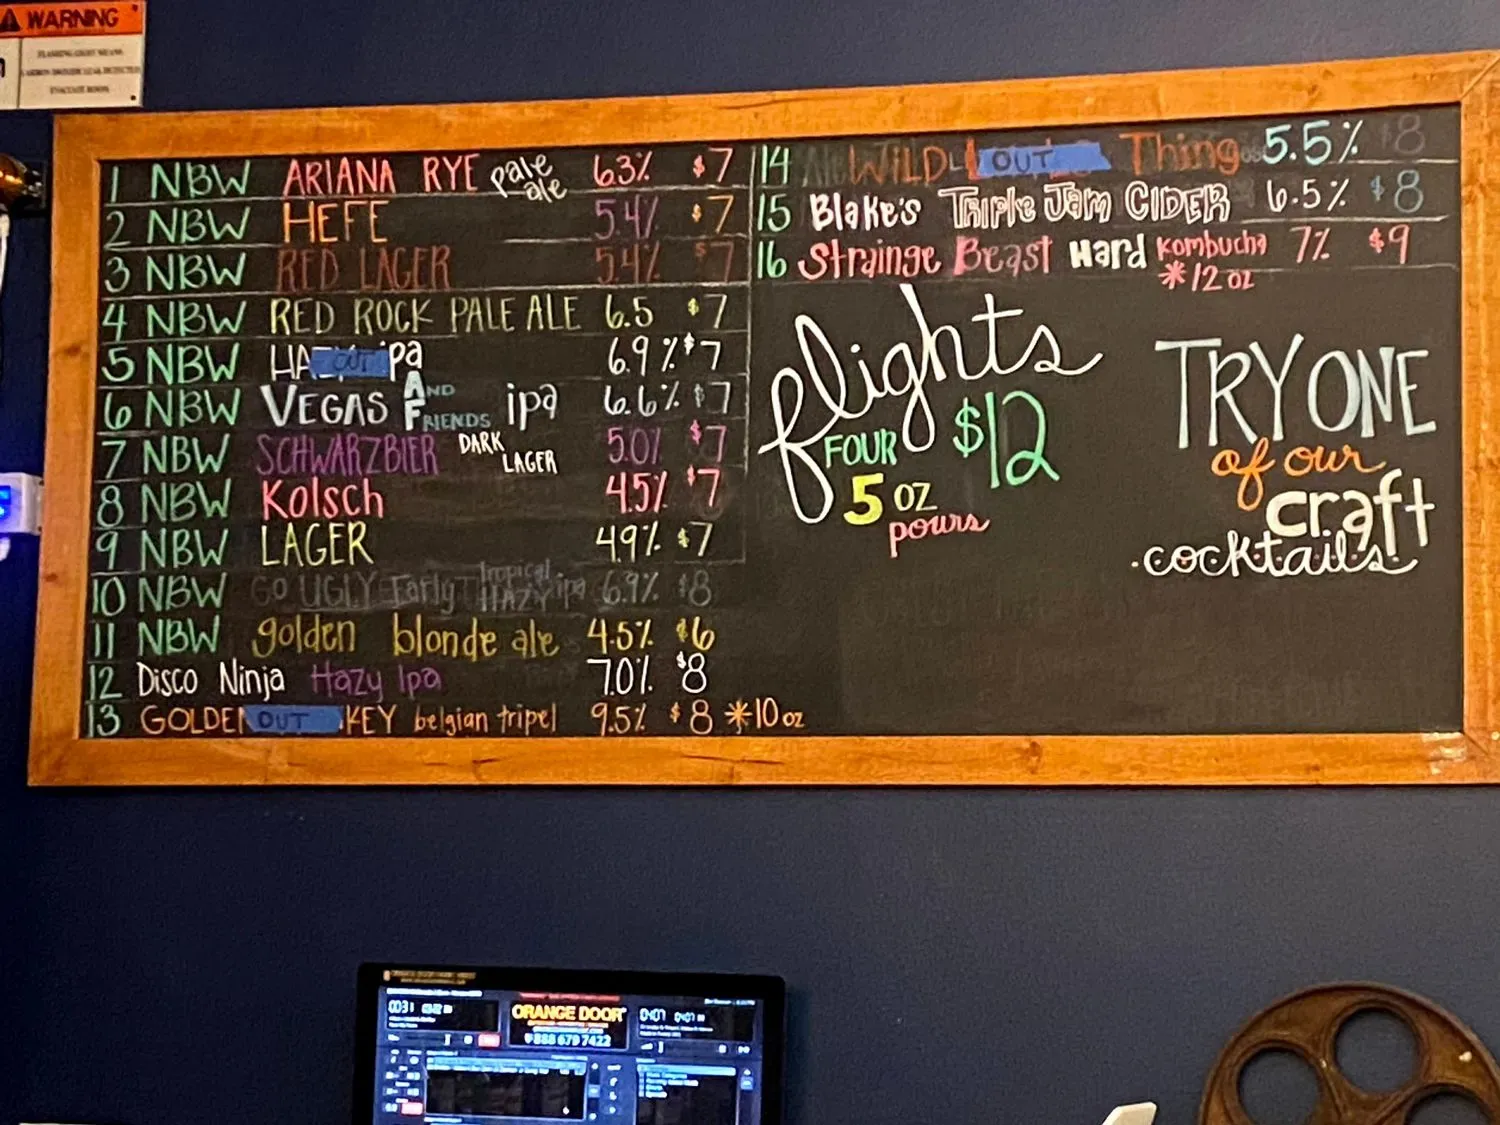 WARNING
FLASHING LIGHT MEANS
CARBON DIOXIDE LEAK DETECTED
EVACUATE ROOM
1 NBW ARIANA RYE pale ale 6.3% $7
2 NBW HEFE 5.4% $7
3 NBW RED LAGER 5.4% $7
4 NBW RED ROCK PALE ALE 6.5 $7
5 NBW HAZY OUT ipa 6.9% $7
6 NBW VEGAS AND FRIENDS ipa 6.6% $7
7 NBW SCHWARZBIER DARK LAGER 5.0% $7
8 NBW Kolsch 4.5% $7
9 NBW LAGER 4.9% $7
10 NBW GO UGLY Early Tropical HAZY ipa 6.9% $8
11 NBW golden blonde ale 4.5% $6
12 Disco Ninja Hazy Ipa 7.0% $8
13 GOLDEN OUT KEY belgian tripel 9.5% $8 *10 oz
14 WILD OUT Thing 5.5% $8
15 Blake's Triple Jam CIDER 6.5% $8
16 Strainge Beast Hard Kombucha 7% $9
*12 oz
flights
FOUR $12
5 oz
pours
TRY ONE
of our
craft
cocktails
ORANGE DOOR
888 679 7422